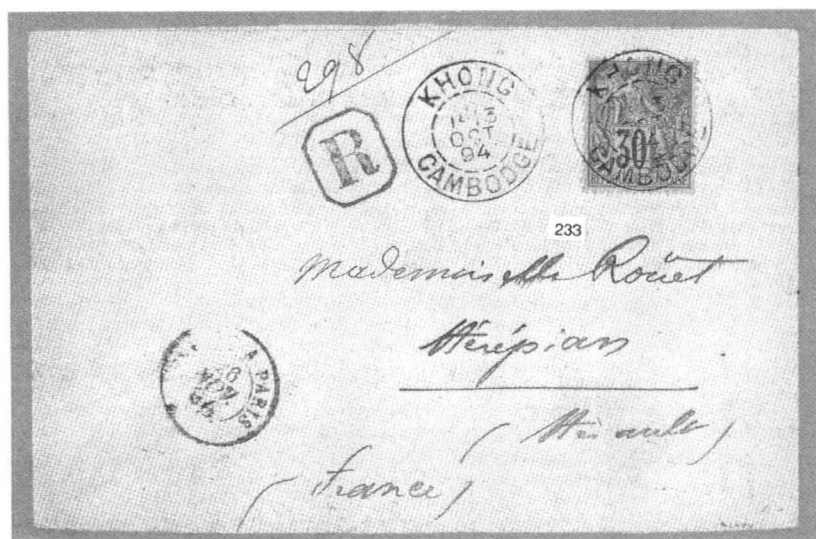 298
R
KHONG
13
OCT
94
CAMBODGE
KHONG
30c
CAMBODGE
233
Mademoiselle Roüet
Hérépian
(Hérault)
(France)
A PARIS
NOV
94